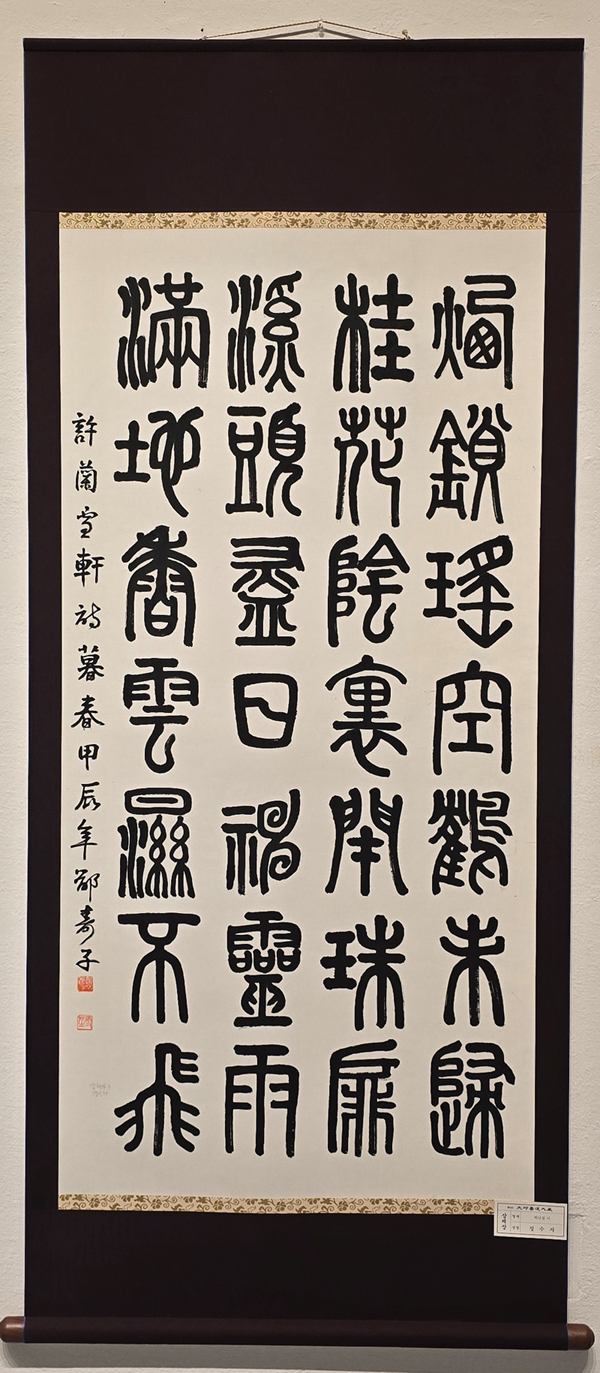 煙鎖瑤空鶴未歸
桂花陰裏閉珠扉
溪頭盡日神靈雨
滿地香雲濕不飛
許蘭雪軒詩暮春甲辰年鄭壽子
정수자